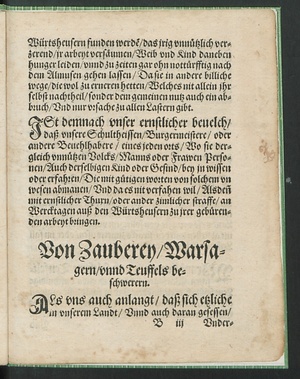 Würtsheusern funden werdẽ / das jrig vnnützlich ver-
zerend / jr arbeyt versäumen / Weib vnd Kind daneben
hunger leiden / vnnd zu zeiten gar ohn notturfftig nach
dem Allmusen gehen lassen / Da sie in andere billiche
wege / die wol zu erneren hetten / Welches nit allein jhr
selbst nachtheil / sonder dem gemeinen nutz auch ein ab-
bruch / Vnd nur vrsache zu allen Lastern gibt.
ISt demnach vnser ernstlicher beuelch /
daß vnsere Schultheissen / Burgermeistere / oder
andere Beuelhhabere / eines jeden orts / Wo sie der-
gleich vnnützen Volcks / Manns oder Frawen Perso-
nen / Auch derselbigen Kind oder Gesind / bey in wissen
oder erfahren / Die mit gütigen worten von solchem vn
wesen abmanen / Vnd da es nit verfahen wil / Alsdeñ
mit ernstlicher Thurn / oder ander zimlicher straffe / an
Wercktagen auß den Würtsheusern zu jrer gebüren-
den arbeyt bringen.
Von Zauberey / Warsa-
gern / vnnd Teuffels be-
schwerern.
ALs vns auch anlangt / daß sich etzliche
in vnserem Landt / Vnnd auch daran gesessen /
B iij Vnder-